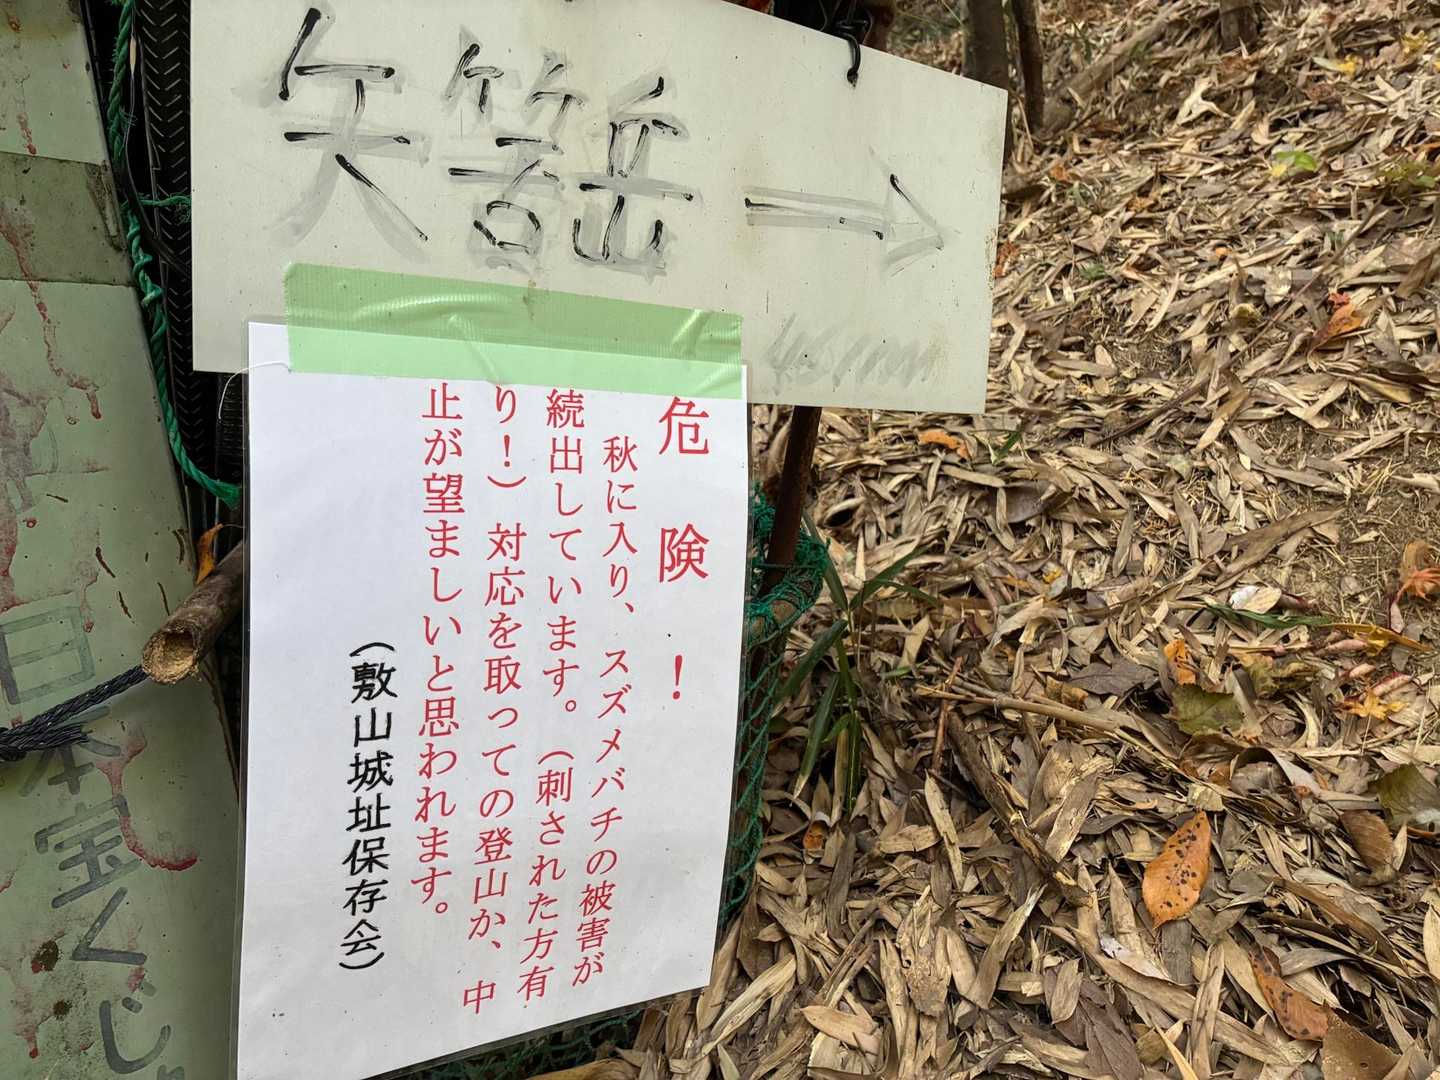 矢筈岳→
45mm
危険！
秋に入り、スズメバチの被害が
続出しています。（刺された方有
り！）対応を取っての登山か、中
止が望ましいと思われます。
（敷山城址保存会）
日本宝くじ